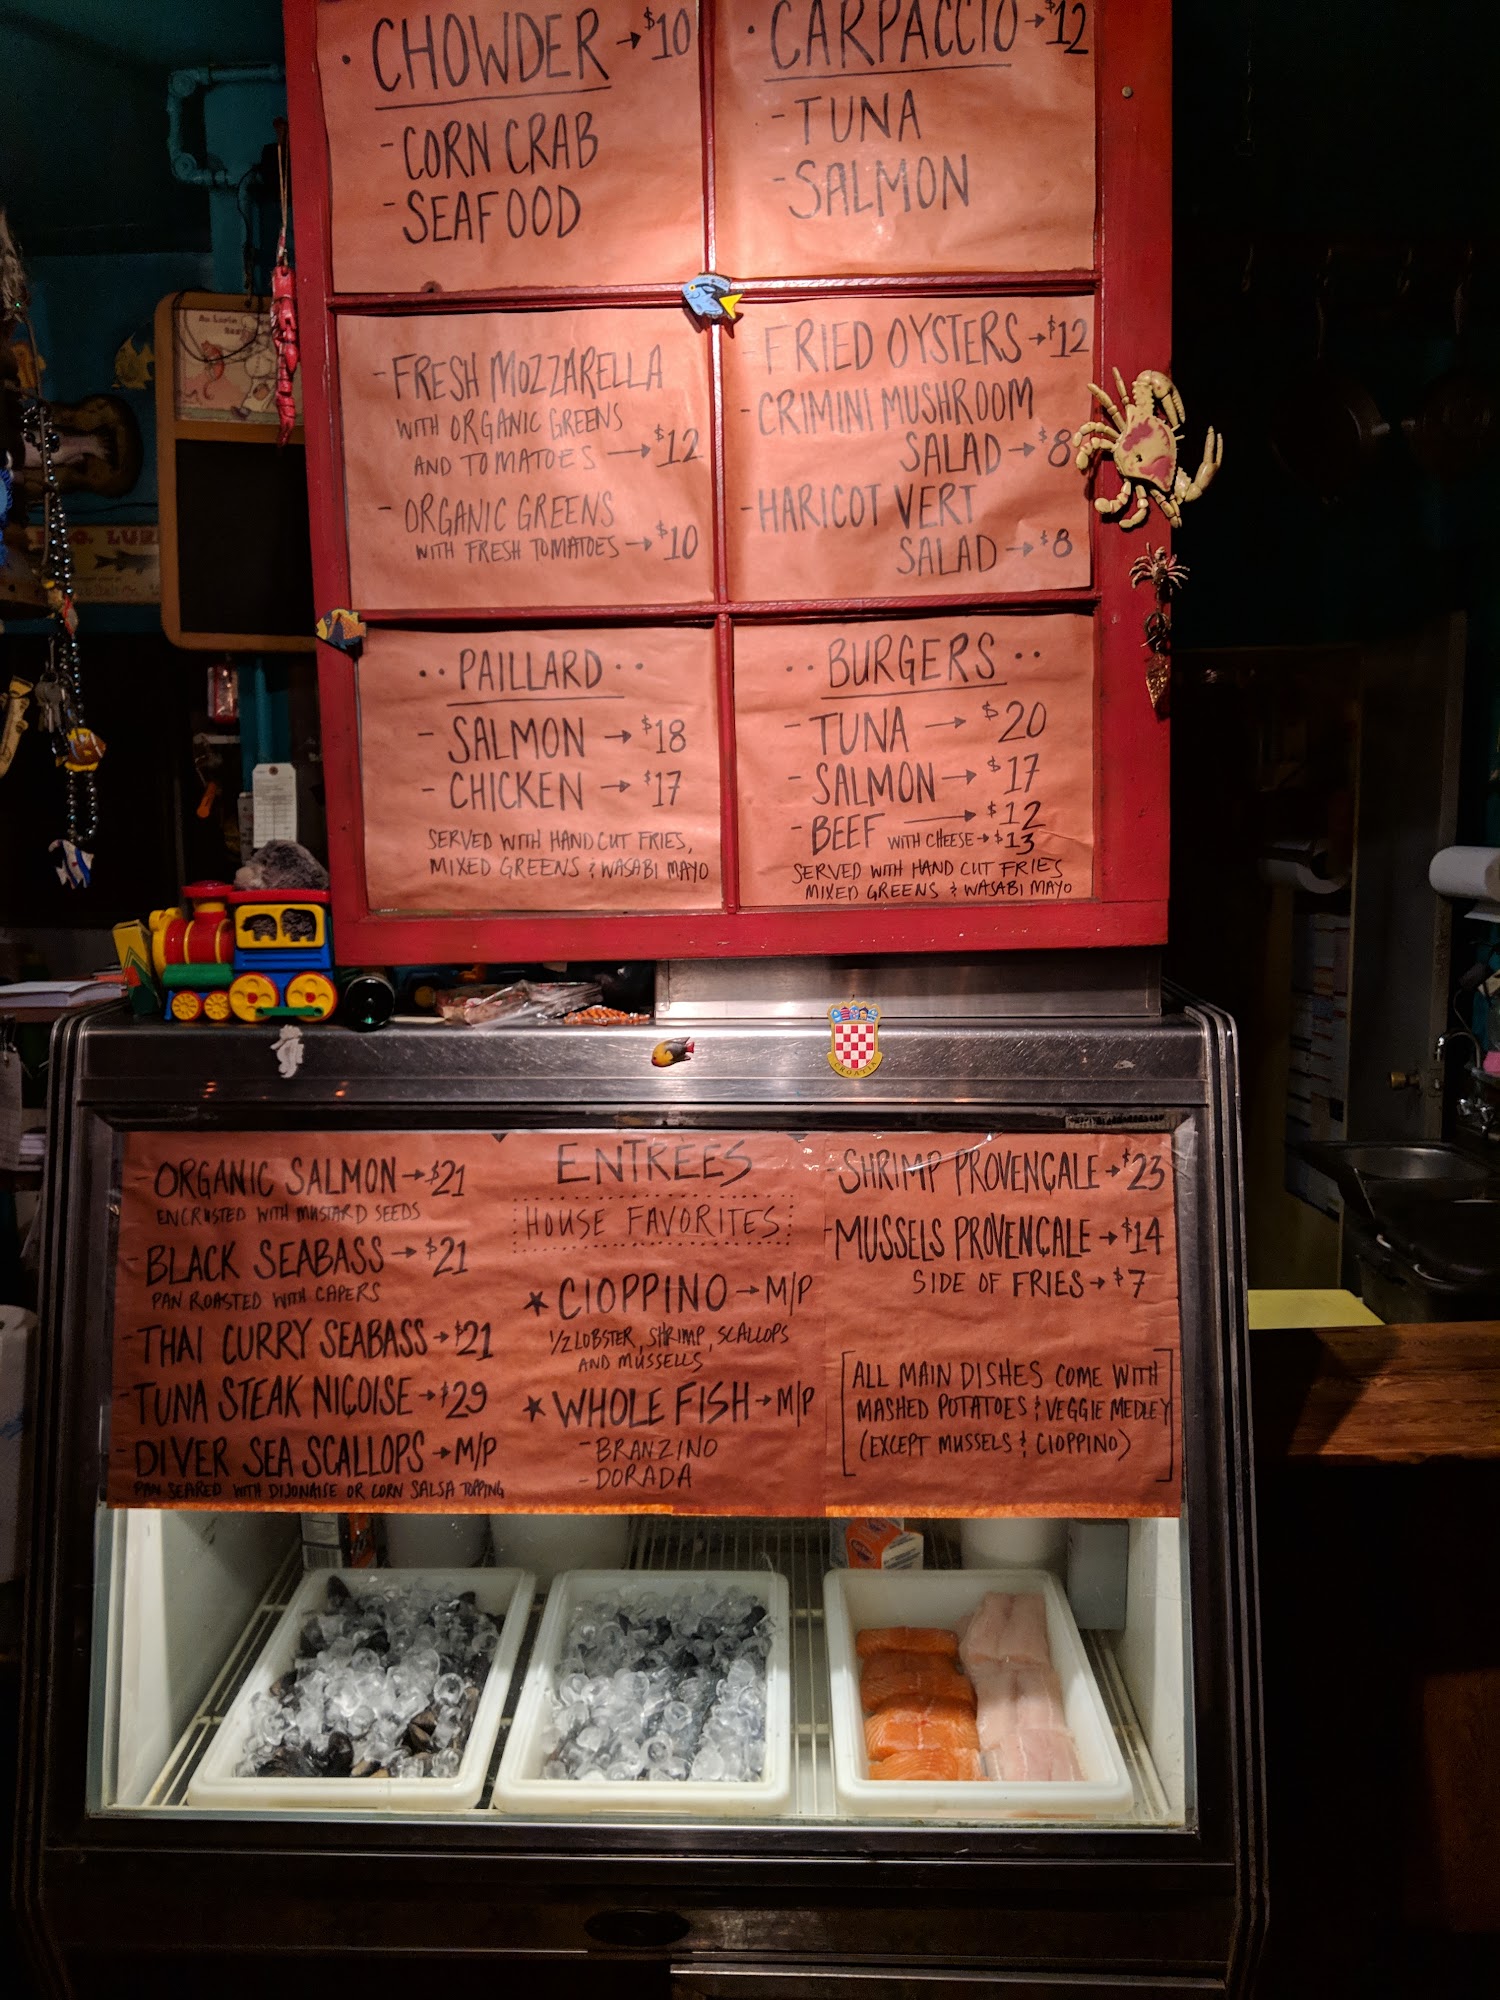 · CHOWDER → $10
- CORN CRAB
- SEAFOOD
· CARPACCIO → $12
- TUNA
- SALMON
- FRESH MOZZARELLA
WITH ORGANIC GREENS
AND TOMATOES → $12
- ORGANIC GREENS
WITH FRESH TOMATOES → $10
- FRIED OYSTERS → $12
- CRIMINI MUSHROOM
SALAD → $8
- HARICOT VERT
SALAD → $8
·· PAILLARD ··
- SALMON → $18
- CHICKEN → $17
SERVED WITH HAND CUT FRIES,
MIXED GREENS & WASABI MAYO
·· BURGERS ··
- TUNA → $20
- SALMON → $17
- BEEF → $12
WITH CHEESE → $13
SERVED WITH HAND CUT FRIES
MIXED GREENS & WASABI MAYO
CROATIA
- ORGANIC SALMON → $21
ENCRUSTED WITH MUSTARD SEEDS
- BLACK SEABASS → $21
PAN ROASTED WITH CAPERS
- THAI CURRY SEABASS → $21
- TUNA STEAK NIÇOISE → $29
- DIVER SEA SCALLOPS → M/P
PAN SEARED WITH DIJONAISE OR CORN SALSA TOPPING
ENTREES
HOUSE FAVORITES
★ CIOPPINO → M/P
1/2 LOBSTER, SHRIMP, SCALLOPS
AND MUSSELLS
★ WHOLE FISH → M/P
- BRANZINO
- DORADA
- SHRIMP PROVENÇALE → $23
- MUSSELS PROVENÇALE → $14
SIDE OF FRIES → $7
[ALL MAIN DISHES COME WITH
MASHED POTATOES & VEGGIE MEDLEY
(EXCEPT MUSSELS & CIOPPINO)]